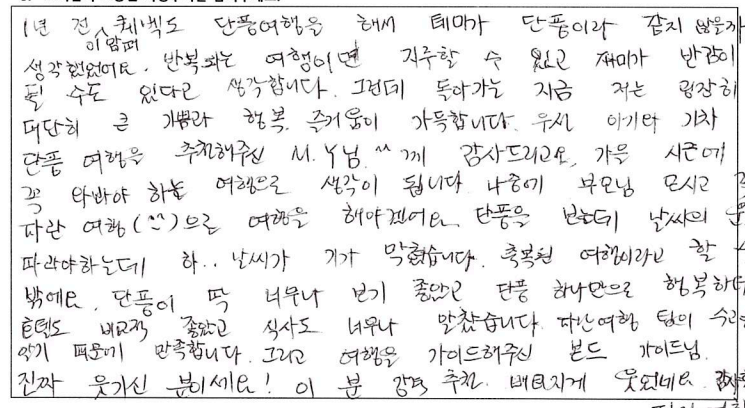 1년 전 이맘때 퀘벡도 단풍여행을 해서 테마가 단풍이라 같지 않을까
생각했었어요. 반복되는 여행이면 지루할 수 있고 재미가 반감이
될 수도 있다고 생각합니다. 그런데 돌아가는 지금 저는 굉장히
대단히 큰 기쁨과 행복, 즐거움이 가득합니다. 우선 아가와 기차
단풍 여행을 추천해주신 M.Y님^^께 감사드리고요, 가을 시즌에
꼭 와봐야 하는 여행으로 생각이 됩니다. 나중에 부모님 모시고
파란 여행(^^)으로 여행을 해야겠어요. 단풍을 보는데 날씨의 운
따라야하는데 하.. 날씨가 기가 막혔습니다. 축복된 여행이라고 할 수
밖에요. 단풍이 딱 너무나 보기 좋았고 단풍 하나만으로 행복하며
호텔도 비교적 좋았고 식사도 너무나 알찼습니다. 파란여행 팀의 수고
알기 때문에 만족합니다. 그리고 여행을 가이드해주신 본드 가이드님.
진짜 웃기신 분이세요! 이 분 강력 추천. 배터지게 웃었네요.